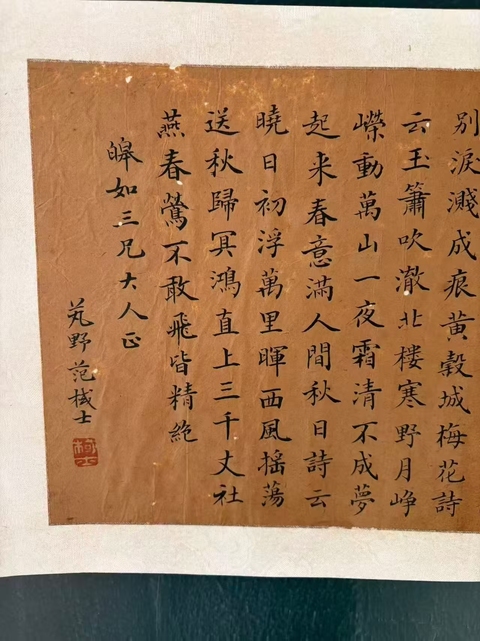 別淚濺成痕黃穀城梅花詩
云玉簫吹澈北楼寒野月崢
嶸動萬山一夜霜清不成夢
起来春意滿人間秋日詩云
曉日初浮萬里暉西風揺蕩
送秋歸冥鴻直上三千丈社
燕春鶯不敢飛皆精絶
皞如三兄大人正
芄野范棫士